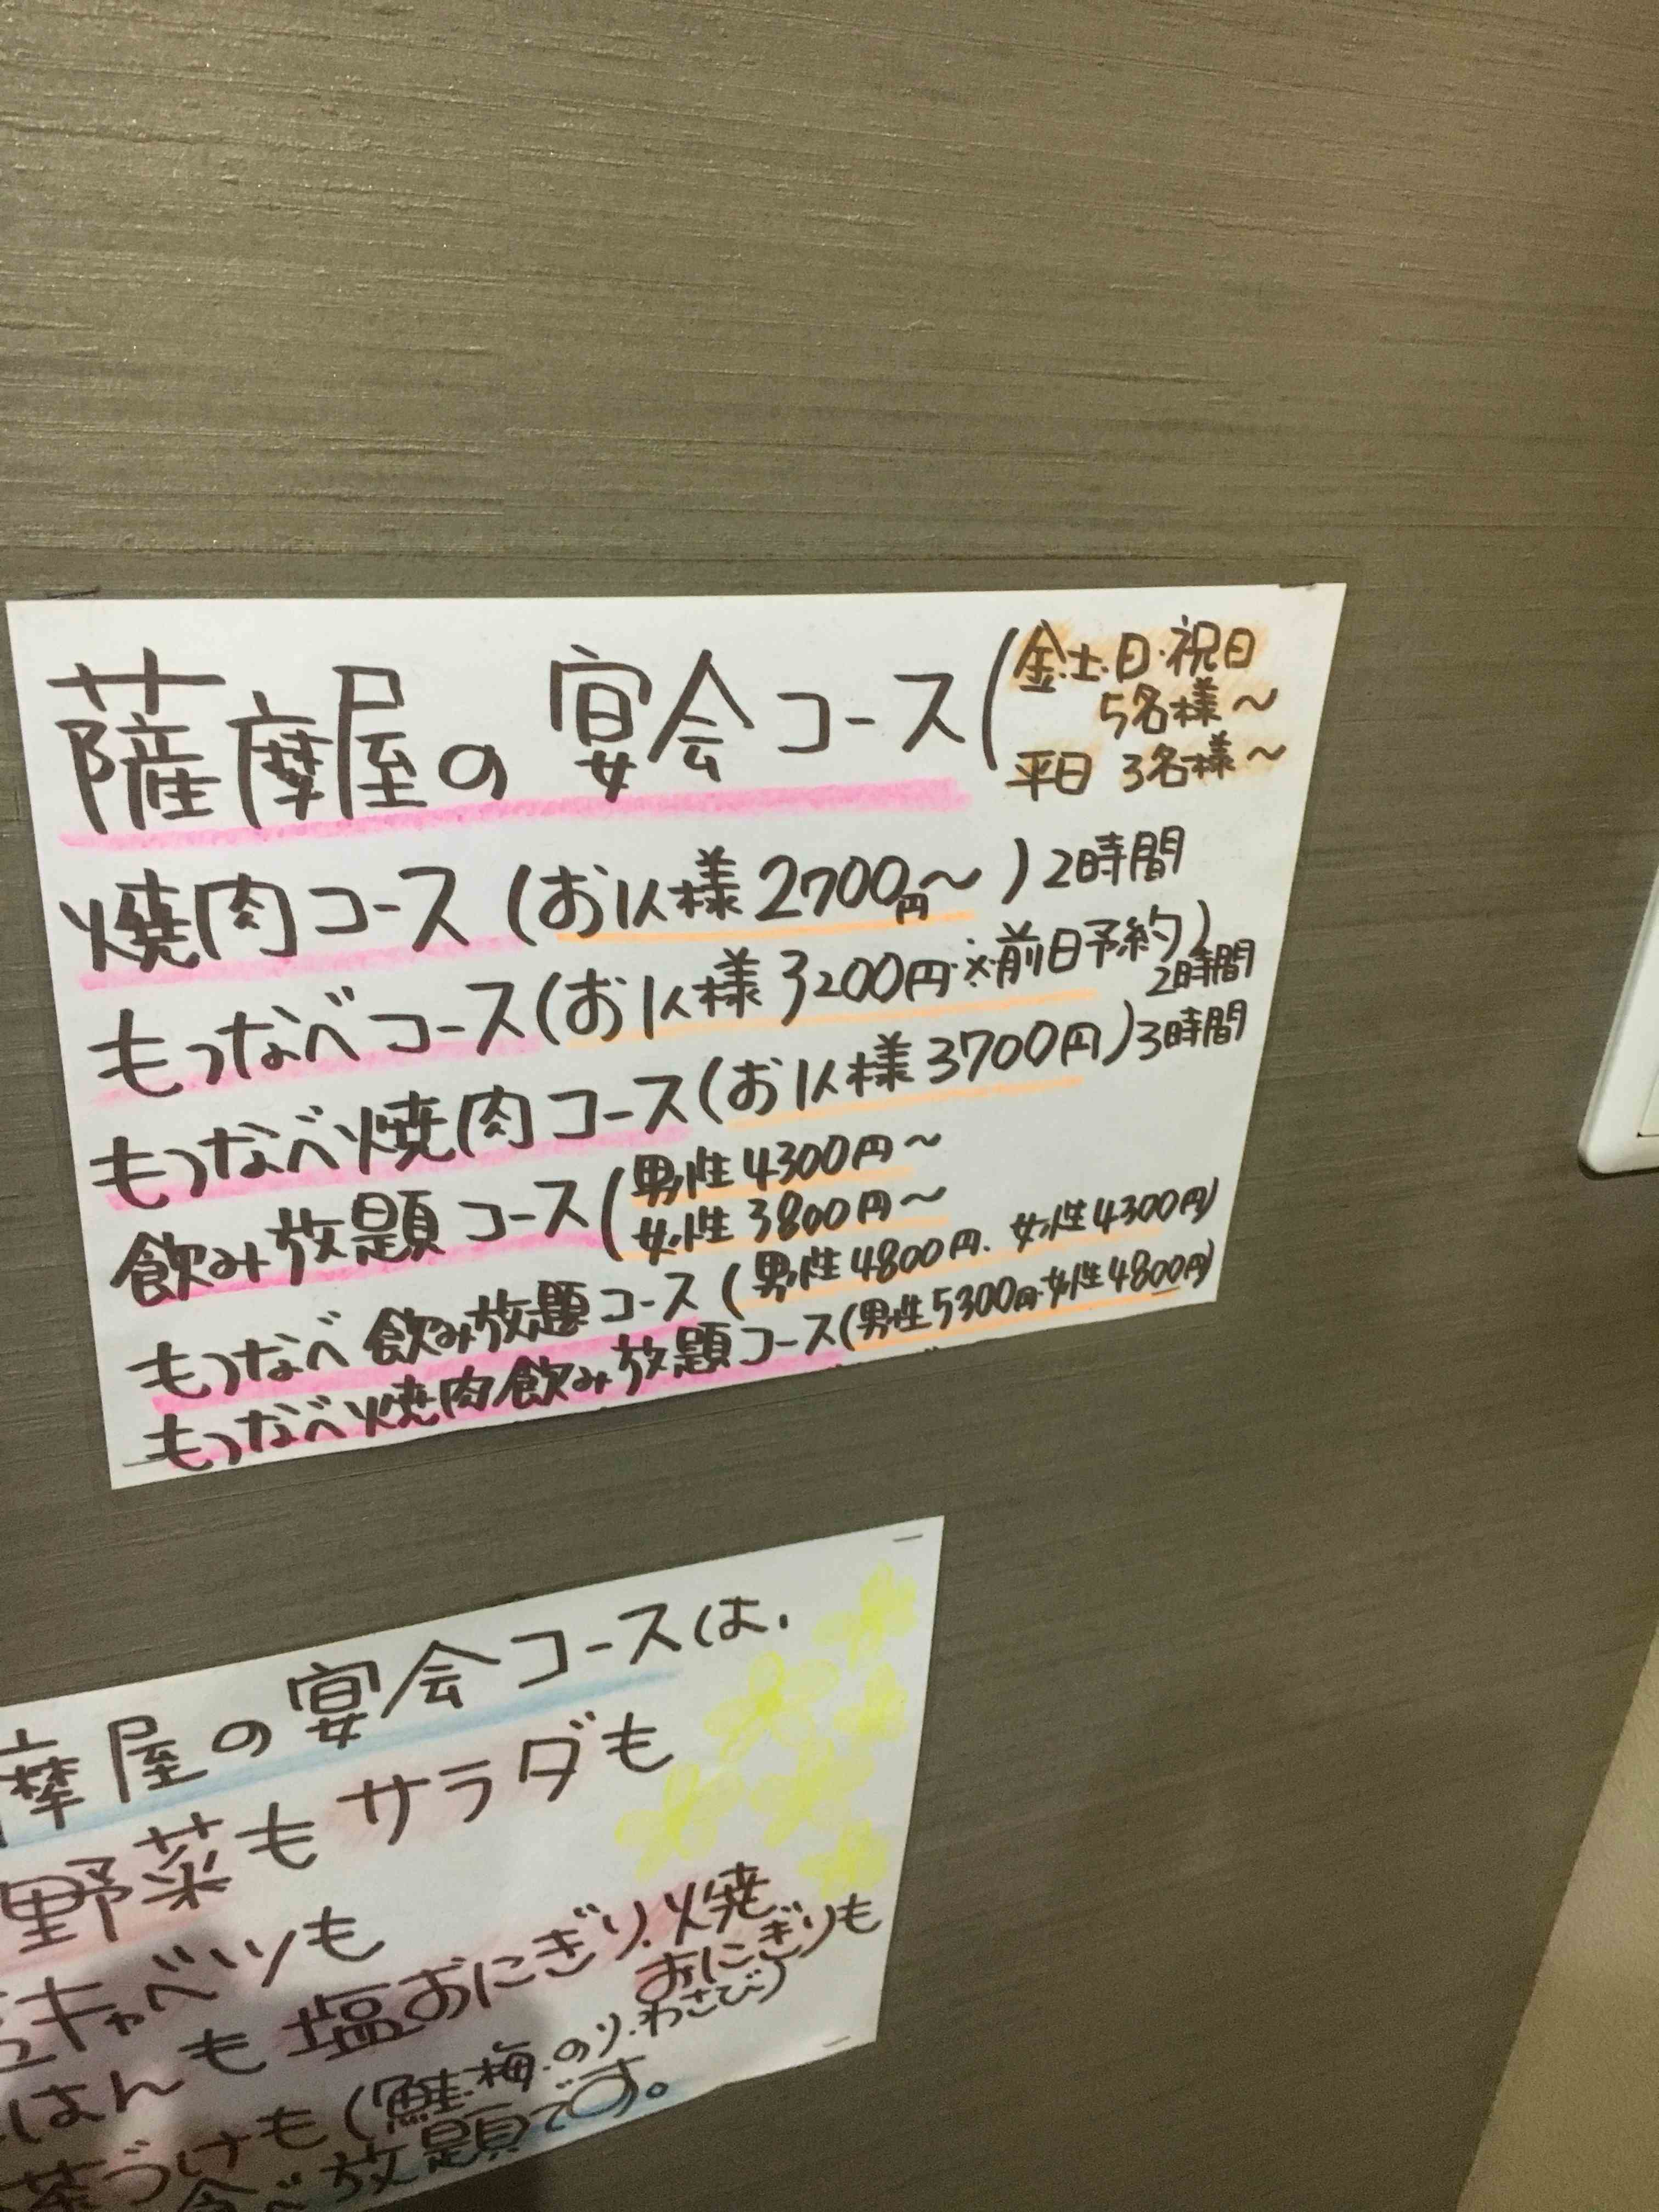 薩摩屋の宴会コース(金.土.日.祝日
5名様～
平日 3名様～
焼肉コース(お1人様2700円～)2時間
もつなべコース(お1人様3200円.※前日予約)
2時間
もつなべ焼肉コース(お1人様3700円)3時間
飲み放題コース(男性4300円～
女性3800円～
もつなべ飲み放題コース(男性4800円.女性4300円)
もつなべ焼肉飲み放題コース(男性5300円.女性4800円)
摩屋の宴会コースは、
野菜もサラダも
キャベツも
はんも塩おにぎり.焼
おにぎりも
茶づけも(鮭.梅.のり.わさび)
食べ放題です。